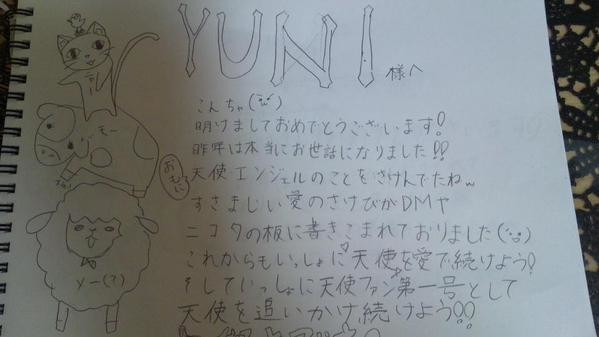 YUNI 様へ
こんちゃ
明けましておめでとうございます!
昨年は本当にお世話になりました!!
天使エンジェルのことをさけんでたねw
すさまじい愛のさけびがDMや
ニコタの板に書きこまれておりました
これからもいっしょに天使を愛で続けよう!
そしていっしょに天使ファン第一号として
天使を追いかけ続けよう!!
ニャー
モー
おもに
メー(?)